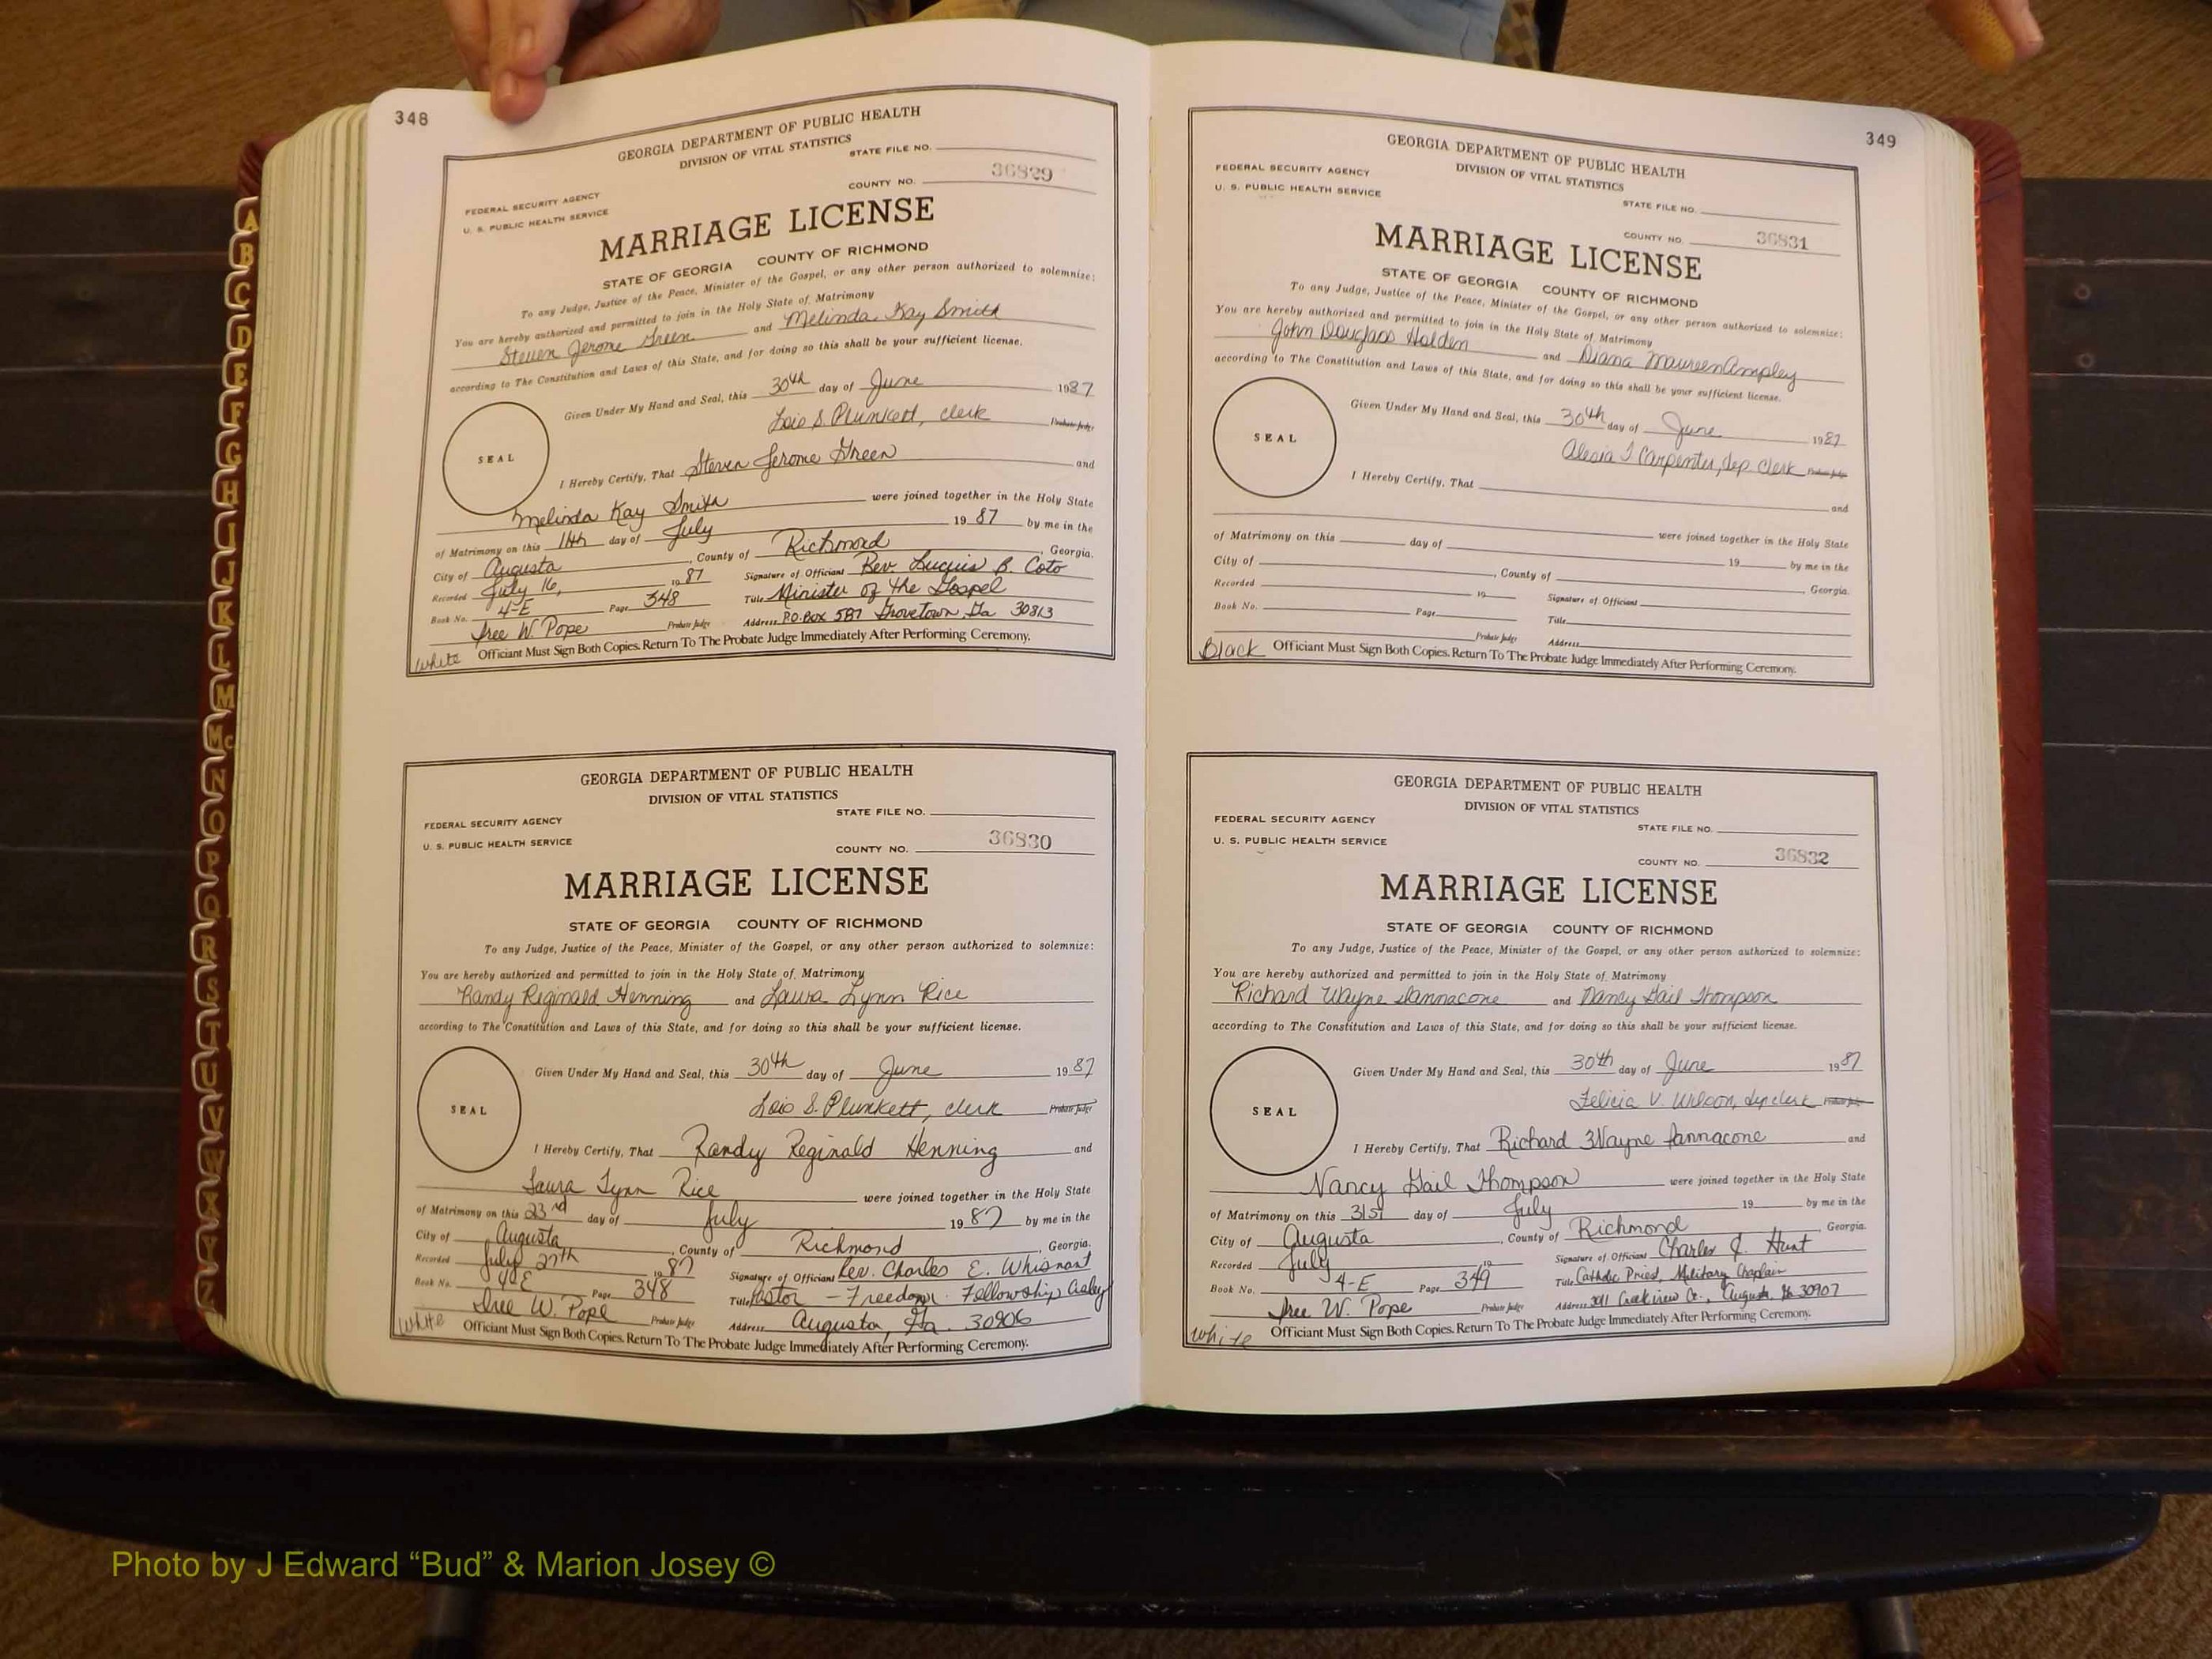 348
GEORGIA DEPARTMENT OF PUBLIC HEALTH
DIVISION OF VITAL STATISTICS
STATE FILE NO.
COUNTY NO. 36829
FEDERAL SECURITY AGENCY
U. S. PUBLIC HEALTH SERVICE
MARRIAGE LICENSE
STATE OF GEORGIA COUNTY OF RICHMOND
To any Judge, Justice of the Peace, Minister of the Gospel, or any other person authorized to solemnize:
You are hereby authorized and permitted to join in the Holy State of Matrimony
Steven Jerome Green and Melinda Kay Smith
according to The Constitution and Laws of this State, and for doing so this shall be your sufficient license.
Given Under My Hand and Seal, this 30th day of June 1987
Lois S. Plunkett, clerk Probate Judge
SEAL
I Hereby Certify, That Steven Jerome Green and
Melinda Kay Smith were joined together in the Holy State
of Matrimony on this 11th day of July 19 87 by me in the
City of Augusta, County of Richmond, Georgia.
Recorded July 16, 19 87 Signature of Officiant Rev. B. Coto
Book No. 4-E Page 348 Title Minister of the Gospel
Iree W. Pope Probate Judge Address P.O. Box 587 Grovetown, Ga 30813
White Officiant Must Sign Both Copies. Return To The Probate Judge Immediately After Performing Ceremony.
GEORGIA DEPARTMENT OF PUBLIC HEALTH
DIVISION OF VITAL STATISTICS
STATE FILE NO.
FEDERAL SECURITY AGENCY
U. S. PUBLIC HEALTH SERVICE
COUNTY NO. 36830
MARRIAGE LICENSE
STATE OF GEORGIA COUNTY OF RICHMOND
To any Judge, Justice of the Peace, Minister of the Gospel, or any other person authorized to solemnize:
You are hereby authorized and permitted to join in the Holy State of Matrimony
Randy Reginald Henning and Laura Lynn Rice
according to The Constitution and Laws of this State, and for doing so this shall be your sufficient license.
Given Under My Hand and Seal, this 30th day of June 1987
Lois S. Plunkett, clerk Probate Judge
SEAL
I Hereby Certify, That Randy Reginald Henning and
Laura Lynn Rice were joined together in the Holy State
of Matrimony on this 23rd day of July 19 87 by me in the
City of Augusta, County of Richmond, Georgia.
Recorded July 27th 19 87 Signature of Officiant Rev. Charles E. Whisnant
Book No. 4-E Page 348 Title Pastor - Freedom Fellowship
Iree W. Pope Probate Judge Address Augusta, Ga. 30906
White Officiant Must Sign Both Copies. Return To The Probate Judge Immediately After Performing Ceremony.
349
GEORGIA DEPARTMENT OF PUBLIC HEALTH
DIVISION OF VITAL STATISTICS
FEDERAL SECURITY AGENCY
U. S. PUBLIC HEALTH SERVICE
STATE FILE NO.
COUNTY NO. 36831
MARRIAGE LICENSE
STATE OF GEORGIA COUNTY OF RICHMOND
To any Judge, Justice of the Peace, Minister of the Gospel, or any other person authorized to solemnize:
You are hereby authorized and permitted to join in the Holy State of Matrimony
John Douglass Holden and Diana Maureen Ampley
according to The Constitution and Laws of this State, and for doing so this shall be your sufficient license.
Given Under My Hand and Seal, this 30th day of June 1987
Alesia J Carpenter, dep. clerk Probate Judge
SEAL
I Hereby Certify, That and
were joined together in the Holy State
of Matrimony on this day of 19 by me in the
City of , County of , Georgia.
Recorded 19 Signature of Officiant
Book No. Page Title
Probate Judge Address
Black Officiant Must Sign Both Copies. Return To The Probate Judge Immediately After Performing Ceremony.
GEORGIA DEPARTMENT OF PUBLIC HEALTH
DIVISION OF VITAL STATISTICS
FEDERAL SECURITY AGENCY
U. S. PUBLIC HEALTH SERVICE
STATE FILE NO.
COUNTY NO. 36832
MARRIAGE LICENSE
STATE OF GEORGIA COUNTY OF RICHMOND
To any Judge, Justice of the Peace, Minister of the Gospel, or any other person authorized to solemnize:
You are hereby authorized and permitted to join in the Holy State of Matrimony
Richard Wayne Iannacone and Nancy Gail Thompson
according to The Constitution and Laws of this State, and for doing so this shall be your sufficient license.
Given Under My Hand and Seal, this 30th day of June 1987
Felicia V. Wilson, dep clerk Probate Judge
SEAL
I Hereby Certify, That Richard Wayne Iannacone and
Nancy Gail Thompson were joined together in the Holy State
of Matrimony on this 31st day of July 19 by me in the
City of Augusta, County of Richmond, Georgia.
Recorded July 19 Signature of Officiant Charles J. Hunt
Book No. 4-E Page 349 Title Catholic Priest, Military Chaplain
Iree W. Pope Probate Judge Address 3011 Ct., Augusta, Ga 30907
White Officiant Must Sign Both Copies. Return To The Probate Judge Immediately After Performing Ceremony.
A
B
C
D
E
F
G
H
I
J
K
L
M
Mc
N
O
P
Q
R
S
T
U
V
W
X
Y
Z
Photo by J Edward “Bud” & Marion Josey ©